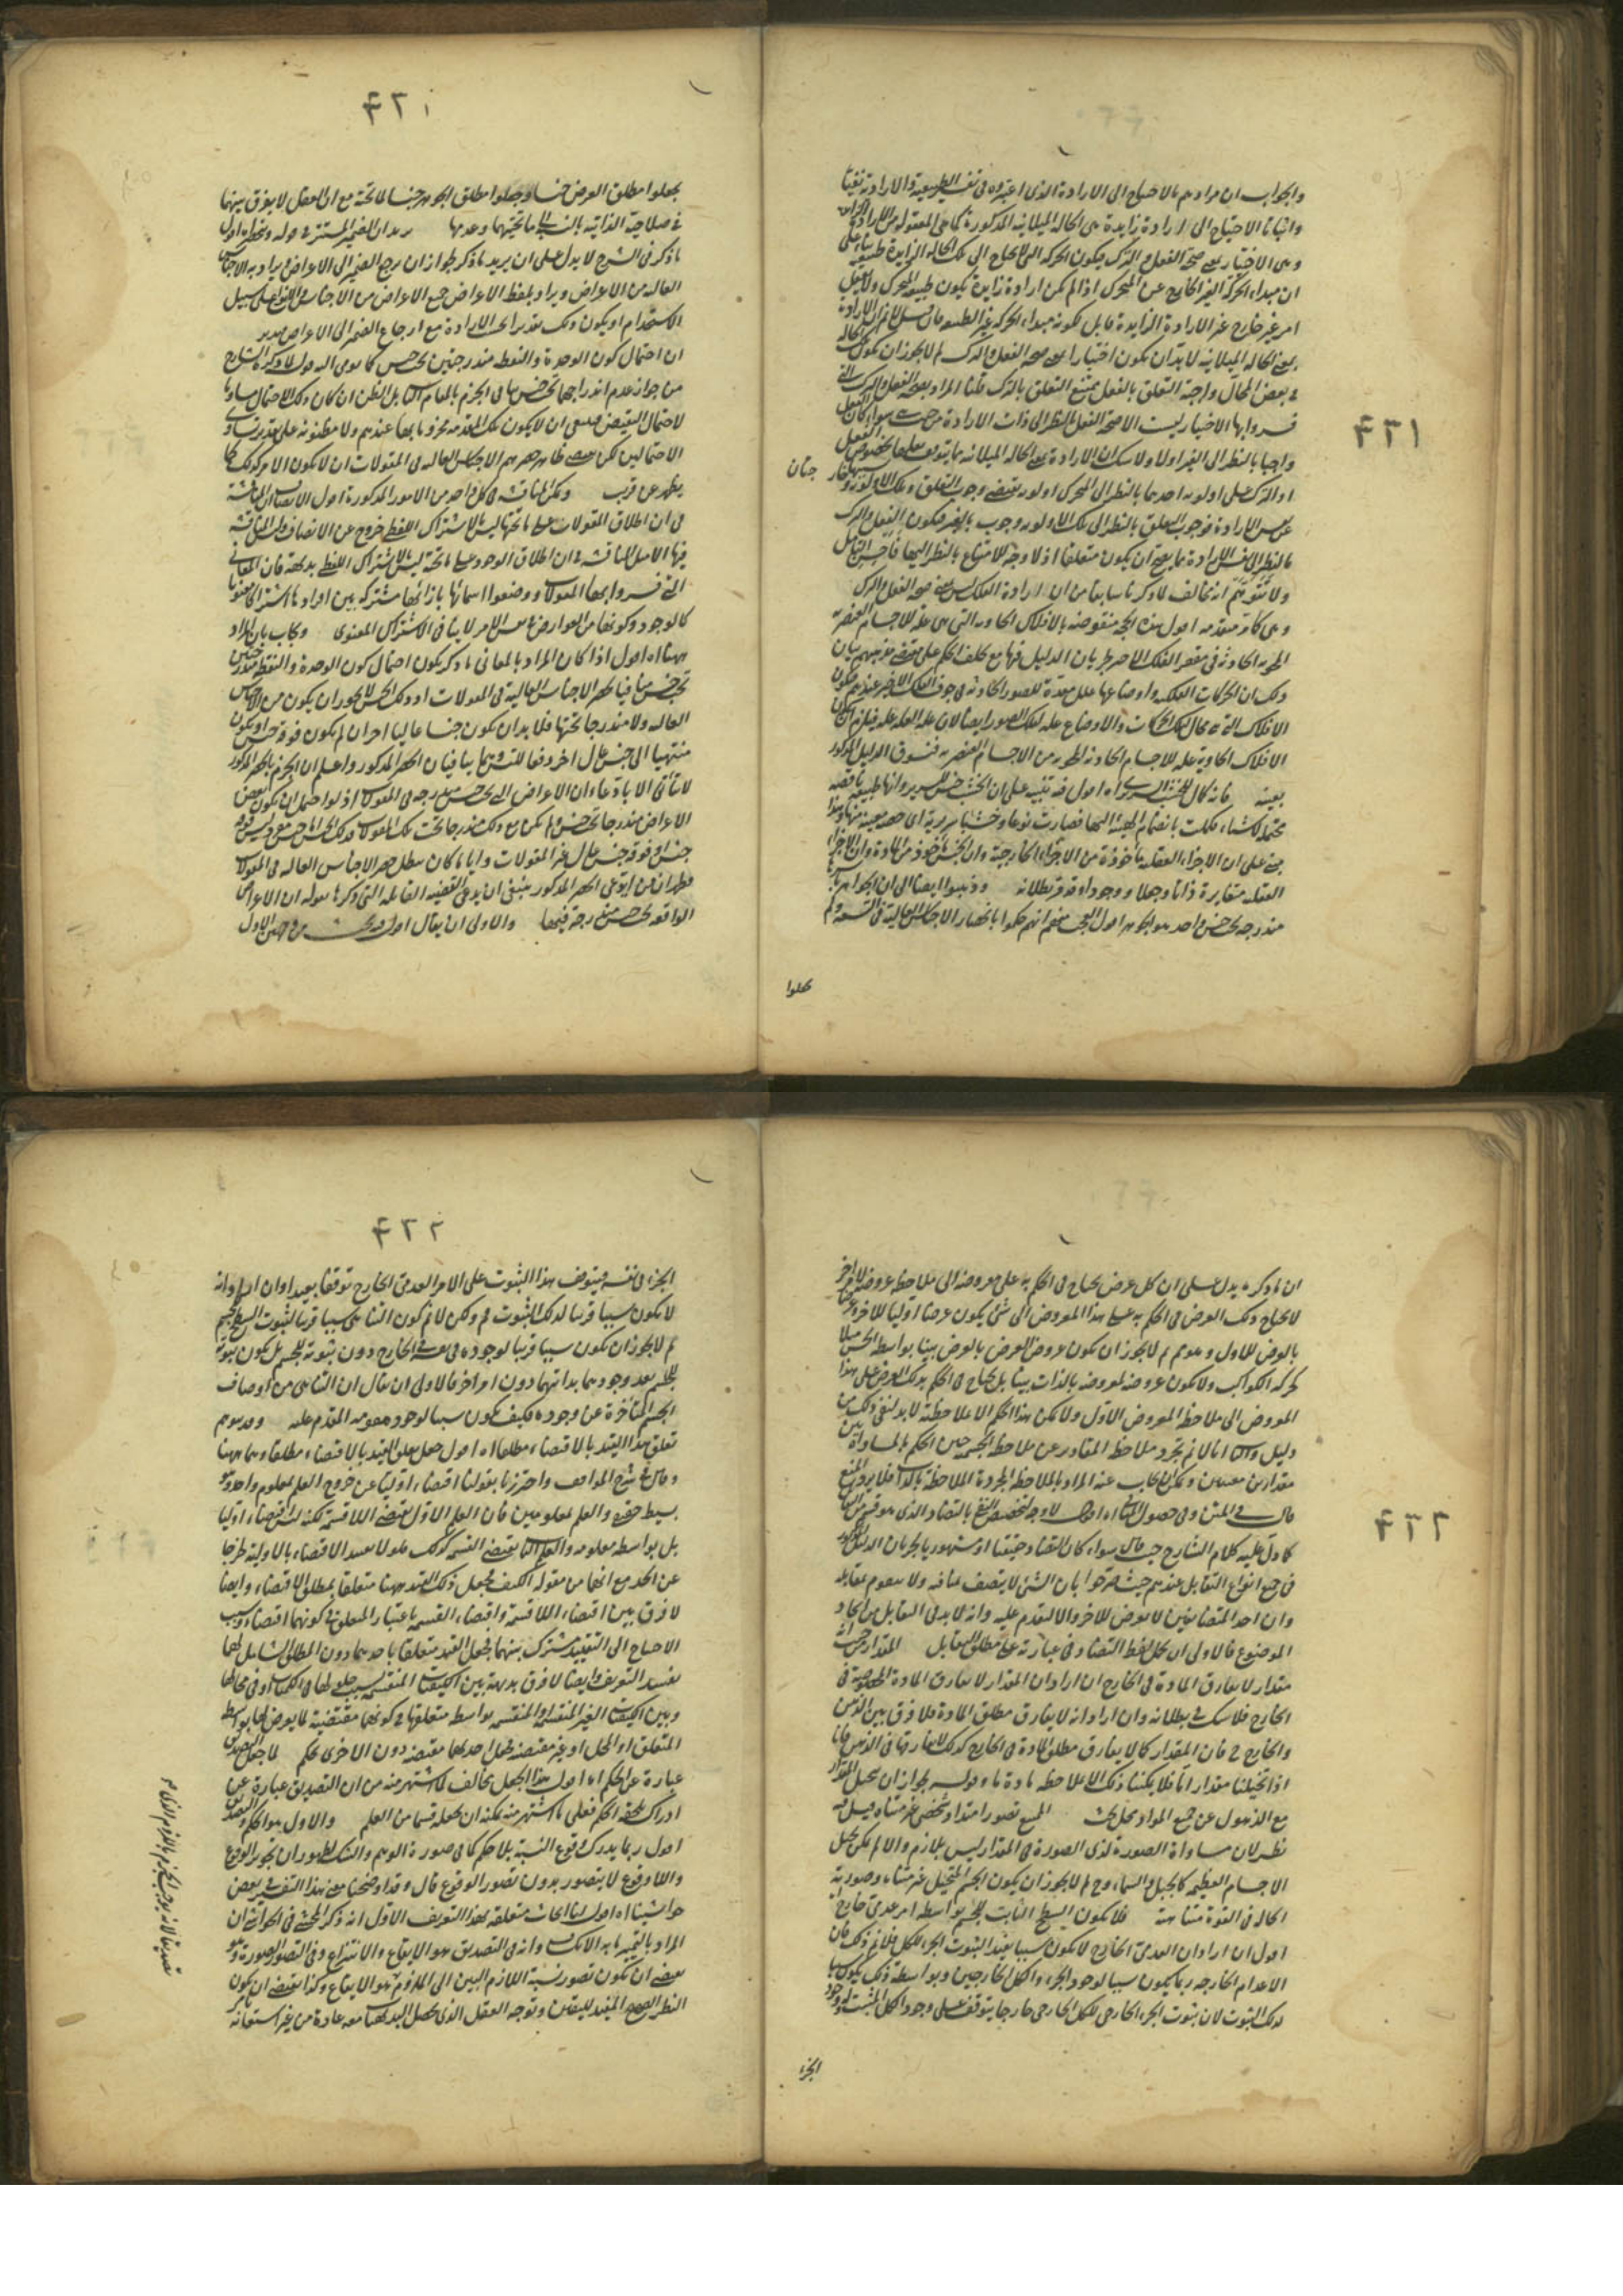 والجواب ان مرادهم بالاحتياج الى الارادة الذى اعتبراه فى نفس الطبيعية والارادية نفيا
واثباتا الاحتياج الى ارادة زايدة هى الحالة الميلانية المذكورة
وهى الاختيار بمعنى صحة الفعل والترك فيكون الحركة التى لا يحتاج الى تلك الحالة الزايدة طبيعية
ان مبداء الحركة الغير الخارج عن المتحرك اذا لم يكن ارادة زايدة يكون طبيعة المتحرك
امر غير خارج غير الارادة الزايدة قابل لكونه مبداء الحركة غير الطبيعة
يعنى الحالة الميلانية لا بد ان يكون اختيارا بمعنى صحة الفعل والترك لم لا يجوز ان يكون
فى بعض المحال واجبة التعلق بالفعل يمتنع التعلق بالترك قلنا المراد بصحة الفعل والترك التى
فسروا بها الاختيار ليست الا صحة الفعل بالنظر الى ذات الارادة من حيث هى سواء كان الفعل
واجبا بالنظر الى الغير اولا ولا شك ان الارادة بمعنى الحالة الميلانية
او الترك على اولوية احدهما بالنظر الى المتحرك اولوية تقتضى وجوب التعلق وتلك الاولوية
جتان
نفس الارادة فوجوب التعلق بالنظر الى تلك الاولوية وجوب بالغير فيكون الفعل والترك
بالنظر الى نفس الارادة مما يصح ان يكون متعلقا اذ لا وجه للامتناع بالنظر اليها فاحسن التامل
ولا تتوهم انه يخالف لما ذكرنا سابقا من ان ارادة الفلك ليس بمعنى صحة الفعل والترك
وهى كافر متعدمه اقول هذه الحجة منقوضة بالافلاك الحاوية التى هى علة للاجسام العنصرية
المحوية الحادثة فى مقعر الفلك الاخير بجريان الدليل فيها مع تخلف الحكم على مقتضى مذهبهم بيان
ذلك ان الحركات الفلكية واوضاعها علل معدة للصور الحادثة فى جوف الفلك الاخير عندهم فيكون
الافلاك التى هى محال تلك الحركات والاوضاع علة لتلك الصور ايضا لان علة العلة علة فيلزم
الافلاك الحاوية علة للاجسام الحادثة المحوية من الاجسام العنصرية فنسوق الدليل المذكور
بعينه فانه كان الخشب للسرير اه اقول فيه تنبيه على ان الخشب جنس للسرير وانها طبيعة ناقصة
محتملة لاشياء فكملت بانضمام الهيئة اليها فصارت نوعا وخشبا سريرية اى حصة معينة منها وهذا
مبنى على ان الاجزاء العقلية ماخوذة من الاجزاء الخارجية وان الجنس ماخوذ من المادة وان الاجزاء
العقلية متغايرة ذاتا وجعلا ووجودا وقد مر بطلانه وذهبوا ايضا الى ان الجواهر
مندرجة تحت جنس واحد هو الجوهر اقول العجب منهم انهم حكموا بانحصار الاجناس العالية فى التسعة ولم
يجعلوا
۴۲۱
۴۲۱
يجعلوا مطلق العرض جنسا وجعلوا مطلق الجوهر جنسا لما تحته مع ان العقل لا يفرق بينهما
فى صلاحية الذاتية بالنسبة الى ما تحتهما وعدمها يريد ان الضمير المستتر فى قوله
ما ذكر فى الشرح لا يدل على ان يريد ما ذكر لجواز ان يرجع الضمير الى الاعراض ويراد به الاجناس
العالية من الاعراض ويراد بلفظ الاعراض جميع الاعراض من الاجناس والانواع على سبيل
الاستخدام او يكون ذلك بتقدير الارادة مع ارجاع الضمير الى الاعراض
ان احتمال كون الوحدة والنقطة مندرجتين تحت جنس كما يومى اليه قول
من جواز عدم اندراجهما تحت جنس ينافى الجزم بالعام بل الظن ان كان ذلك الاحتمال مساويا
لاحتمال النقيض فينبغى ان لا يكون تلك المقدمة مجزوما بها عندهم ولا مظنونة على تقدير تساوى
الاحتمالين لكن مقتضى ظاهر حصرهم الاجناس العالية فى المقولات ان لا يكون الامر كذلك كما
يظهر عن قريب ويمكن المناقشة فى كل واحد من الامور المذكورة اقول الانصاف
فى ان اطلاق المقولات على ما تحتها ليس بالاشتراك اللفظى خروج عن الانصاف
فيها الاصل المناقشة فى ان اطلاق الوجود على ما تحته ليس باشتراك اللفظ بديهية فان المعانى
التى فسروا بها المقولات ووضعوا اسمائها بازائها مشتركة بين افرادها اشتراكا معنويا
كالوجود وكونها من العوارض فى نفس الامر لا ينافى الاشتراك المعنوى ويجاب بان المراد
ههنا اه اقول اذا كان المراد بالمعانى ما ذكر يكون احتمال كون الوحدة والنقطة مندرجتين
تحت جنس منافيا لحصر الاجناس العالية فى المقولات اذ ذلك الجنس لا يجوز ان يكون من الاجناس
العالية ولا مندرجا تحتها فلا بد ان يكون جنسا عاليا اخر ان لم يكون فوقه جنس او يكون
منتهيا الى جنس عال اخر دفعا للتسلسل ينافيان الحصر المذكور واعلم ان الجزم بالحصر المذكور
لا يتأتى الا بادعاء ان الاعراض التى تحت جنس مندرجة فى المقولات اذ لو احتمل ان يكون بعض
الاعراض مندرجا تحت جنس ولم يكن مع ذلك مندرجا تحت تلك المقولات فذلك الجنس اما جنس عال وليس فوقه
جنس او فوقه جنس عال غير المقولات وايا ما كان يبطل حصر الاجناس العالية فى المقولات
فظهر ان من ادعى الحصر المذكور ينبغى ان يدعى القضية القائلة التى ذكرها بقوله ان الاعراض
الواقعة تحت جنس مندرجة فيها والاولى ان يقال اقول فيه بحث
ان ما ذكره يدل على ان كل عرض يحتاج فى الحكم به على معروضه الى ملاحظة عروضه لامر اخر
لا يحتاج ذلك العرض فى الحكم به على هذا المعروض الى شئ يكون عرضا اوليا للاخر
بالعرض للاول وهو مم لم لا يجوز ان يكون عروض العرض بالعرض بينا بواسطة الحس مثلا
كحركة الكواكب ولا يكون عروضه لمعروضه بالذات بينا بل يحتاج فى الحكم بذلك العرض على هذا
المعروض الى ملاحظة المعروض الاول ولا يمكن هذا الحكم الا بملاحظته لا بد لنفى ذلك من
دليل والثانى انا لا نم تجرد ملاحظة المقادير عن ملاحظة الجسمية حين الحكم بالمساواة بين
مقدارين معينين ويمكن ان يجاب عنه المراد بالملاحظة المجردة الملاحظة بالذات فلا يرد المنع
قال فى المتن وفى حصول المنافى اه اقول لا وجه لتخصيص النفى بالتضاد الذى هو قسم من المنافى
كما دل عليه كلام الشارح حيث قال سواء كان التضاد حقيقيا او مشهوريا بجريان الدليل المذكور
فى جميع انواع التقابل عندهم حيث صرحوا بان الشئ لا يتصف بمنافيه ولا يتقوم بمقابله
وان احد المتضايفين لا يعرض للاخر والا لتقدم عليه وانه لا بد فى التقابل من اتحاد
الموضوع فالاولى ان يحمل لفظ التضاد فى عبارته على مطلق التقابل المقدار من حيث انه
مقدار لا يفارق المادة فى الخارج ان اراد ان المقدار لا يفارق المادة المخصوصة فى
الخارج فلا شك فى بطلانه وان اراد انه لا يفارق مطلق المادة فلا فرق بين الذهن
والخارج فى فان المقدار كما لا يفارق مطلق المادة فى الخارج كذلك لا يفارقها فى الذهن فانا
اذا تخيلنا مقدارا ما فلا يمكننا ذلك الا بملاحظة مادة ما وقوله بجواز ان يتخيل المقدار
مع الذهول عن جميع المواد محل بحث الممتنع تصور امتداد شخصى غير متناه قيل فيه
نظر لان مساواة الصورة لذى الصورة فى المقدار ليس بلازم والا لم يمكن تخيل
الاجسام العظيمة كالجبل والسماء وح لم لا يجوز ان يكون الجسم المتخيل غير متناه وصورته
الحالة فى القوة متناهية فلا يكون السطح الثابت للجسم بواسطة امر عدمى خارج
اقول ان اراد ان العدمى الخارج لا يكون سببا بعيدا لثبوت الجزء للكل فلا نم ذلك فان
الاعدام الخارجية ربما يكون سببا لوجود الجزء والكل الخارجيين وبواسطة ذلك يكون سببا
لذلك الثبوت لان ثبوت الجزء الخارجى للكل الخارجى خارجا يتوقف على وجود الكل المثبت له ووجود
الجزء
۴۲۲
۴۲۲
الجزء فى نفسه فيتوقف هذا الثبوت على الامر العدمى الخارج توقفا بعيدا وان اراد انه
لا يكون سببا قريبا لذلك الثبوت فم ولكن لا نم كون التناهى سببا قريبا لثبوت السطح للجسم
لم لا يجوز ان يكون سببا قريبا لوجوده فى نفسه فى الخارج دون ثبوته للجسم بل يكون ثبوته
للجسم بعد وجودهما بذاتهما دون امر اخر فالاولى ان يقال ان التناهى من اوصاف
الجسم المتأخرة عن وجوده فكيف يكون سببا لوجود مقومه المقدم عليه وقد يتوهم
تعلق هذا القيد بالاقتضاء مطلقا اه اقول جعل تعلق القيد بالاقتضاء مطلقا وهما ههنا
وقال فى شرح المواقف واحترزنا بقولنا اقتضاء اوليا عن خروج العلم بمعلوم واحد وهو
بسيط حقيقى والعلم بمعلومين فان العلم الاول يقتضى اللاقسمة لكنه ليس اقتضاء اوليا
بل بواسطة معلومه والعلم الثانى يقتضى القسمة كذلك فلو لا تقييد الاقتضاء بالاولية لخرجا
عن الحد مع انهما من مقولة الكيف فجعل ذلك القيد ههنا متعلقا بمطلق الاقتضاء وايضا
لا فرق بين اقتضاء اللاقسمة واقتضاء القسمة باعتبار المتعلق فى كونهما اقتضاء وسبب
الاحتياج الى التقييد مشترك بينهما فجعل القيد متعلقا باحدهما دون المطلق الشامل لهما
يفسد التعريف وايضا لا فرق بديهية بين الكيفيات المنقسمة بسبب حلولها فى الكميات او فى محالها
وبين الكيفيات الغير المنقسمة او المنقسمة بواسطة متعلقها فى كونهما مقتضية لما يعرض لها بواسطة
المتعلق او المحل او غير مقتضية فجعل احدهما مقتضية دون الاخرى تحكم لما جعل التصديق
عبارة عن الحكم اه اقول هذا الجعل يخالف لما اشتهر منه من ان التصديق عبارة عن
ادراك يلحقه الحكم فعلى ما اشتهر منه يمكنه ان يجعله قسما من العلم والاول هو الحكم والتصديق
اقول ربما يدرك وقوع النسبة بلا حكم كما فى صورة الوهم والشك لظهور ان تجويز الوقوع
واللاوقوع لا يتصور بدون تصور الوقوع قال وقد اوضحنا معنى هذا التفسير فى بعض
حواشينا اه اقول لنا ابحاث متعلقة بهذا التعريف الاول انه ذكر المحشى فى الحواشى ان
المراد بالتمييز ما به الانكشاف وانه فى التصديق هو الايقاع والانتزاع وفى التصور الصورة وهو
يقتضى ان يكون تصور نسبة اللازم البين الى الملزوم هو الايقاع وكذا يقتضى ان يكون
النظر الصحيح المفيد لليقين وتوجه العقل الذى يحصل البديهيات معه عادة من غير استعانة
تصديقا لانه يوجب الجزم